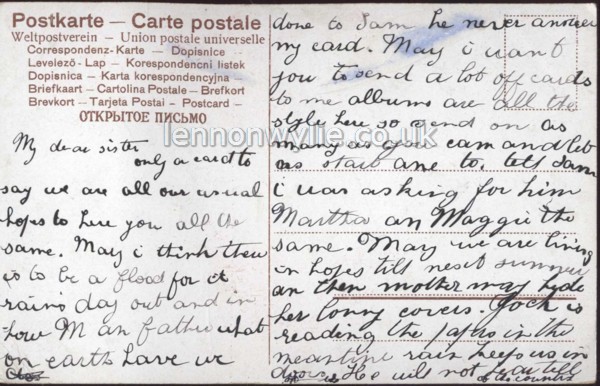 Postkarte — Carte postale
Weltpostverein — Union postale universelle
Correspondenz-Karte — Dopisnice
Levelező-Lap — Korespondencni listek
Dopisnica — Karta korespondencyjna
Briefkaart — Cartolina Postale — Brefkort
Brevkort — Tarjeta Postai — Postcard —
ОТКРЫТОЕ ПИСЬМО
lennonwylie.co.uk
My dear sister
only a card to
say we are all our usual
hopes to here you all the
same. May i think there
is to be a flood for it
rains day out and in
how M an father what
on earth have we
done to Sam he never answer
my card. May i want
you to send a lot off cards
to me albums are all the
style here so send on as
many as you can and let
us start one to. tell Sam
i was asking for him
Martha an Maggie the
same. May we are living
in hopes till next summer
an then mother may hyde
her bonny covers. Jock is
reading the papers in the
meantime rain keeps us in
doors. He will not wau till